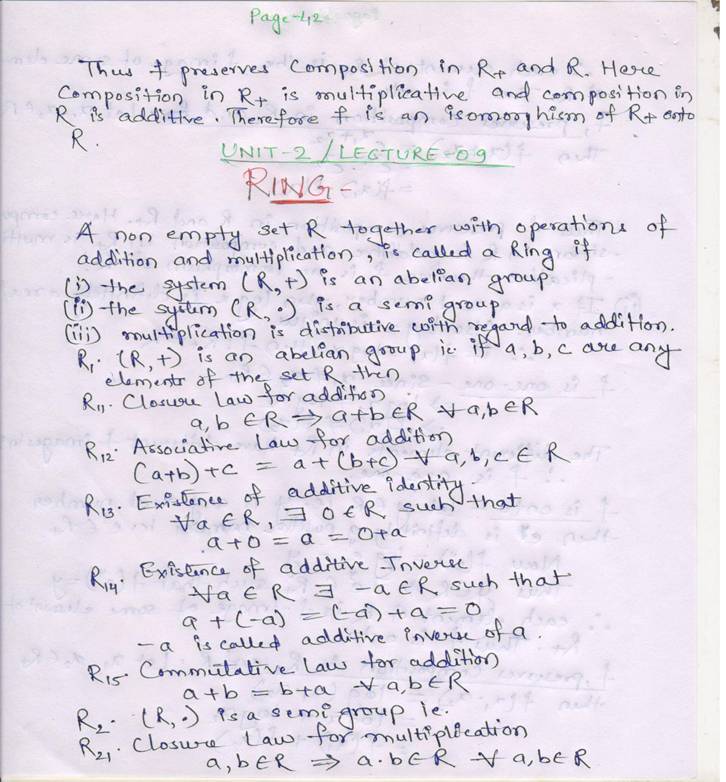 Page-42
Thus f preserves Composition in R₊ and R. Here
Composition in R₊ is multiplicative and composition in
R is additive. Therefore f is an isomorphism of R₊ onto
R.
UNIT-2/LECTURE-09
RING-
A non empty set R together with operations of
addition and multiplication, is called a Ring if
(i) the system (R,+) is an abelian group
(ii) the system (R, ·) is a semi group
(iii) multiplication is distributive with regard to addition.
R₁. (R,+) is an abelian group ie if a, b, c are any
elements of the set R then
R₁₁. Closure Law for addition
a, b ∈R ⇒ a+b∈R ∀ a,b∈R
R₁₂. Associative Law for addition
(a+b)+c = a+(b+c) ∀ a,b,c ∈ R
R₁₃. Existence of additive identity.
∀a ∈R, ∃ 0∈R such that
a+0 = a = 0+a
R₁₄. Existence of additive Inverse
∀a ∈ R ∃ -a∈R such that
a + (-a) = (-a)+a = 0
-a is called additive inverse of a.
R₁₅. Commutative Law for addition
a+b = b+a ∀ a,b∈R
R₂. (R, ·) is a semi group ie.
R₂₁. Closure Law for multiplication
a,b∈R ⇒ a·b∈R ∀ a,b∈R